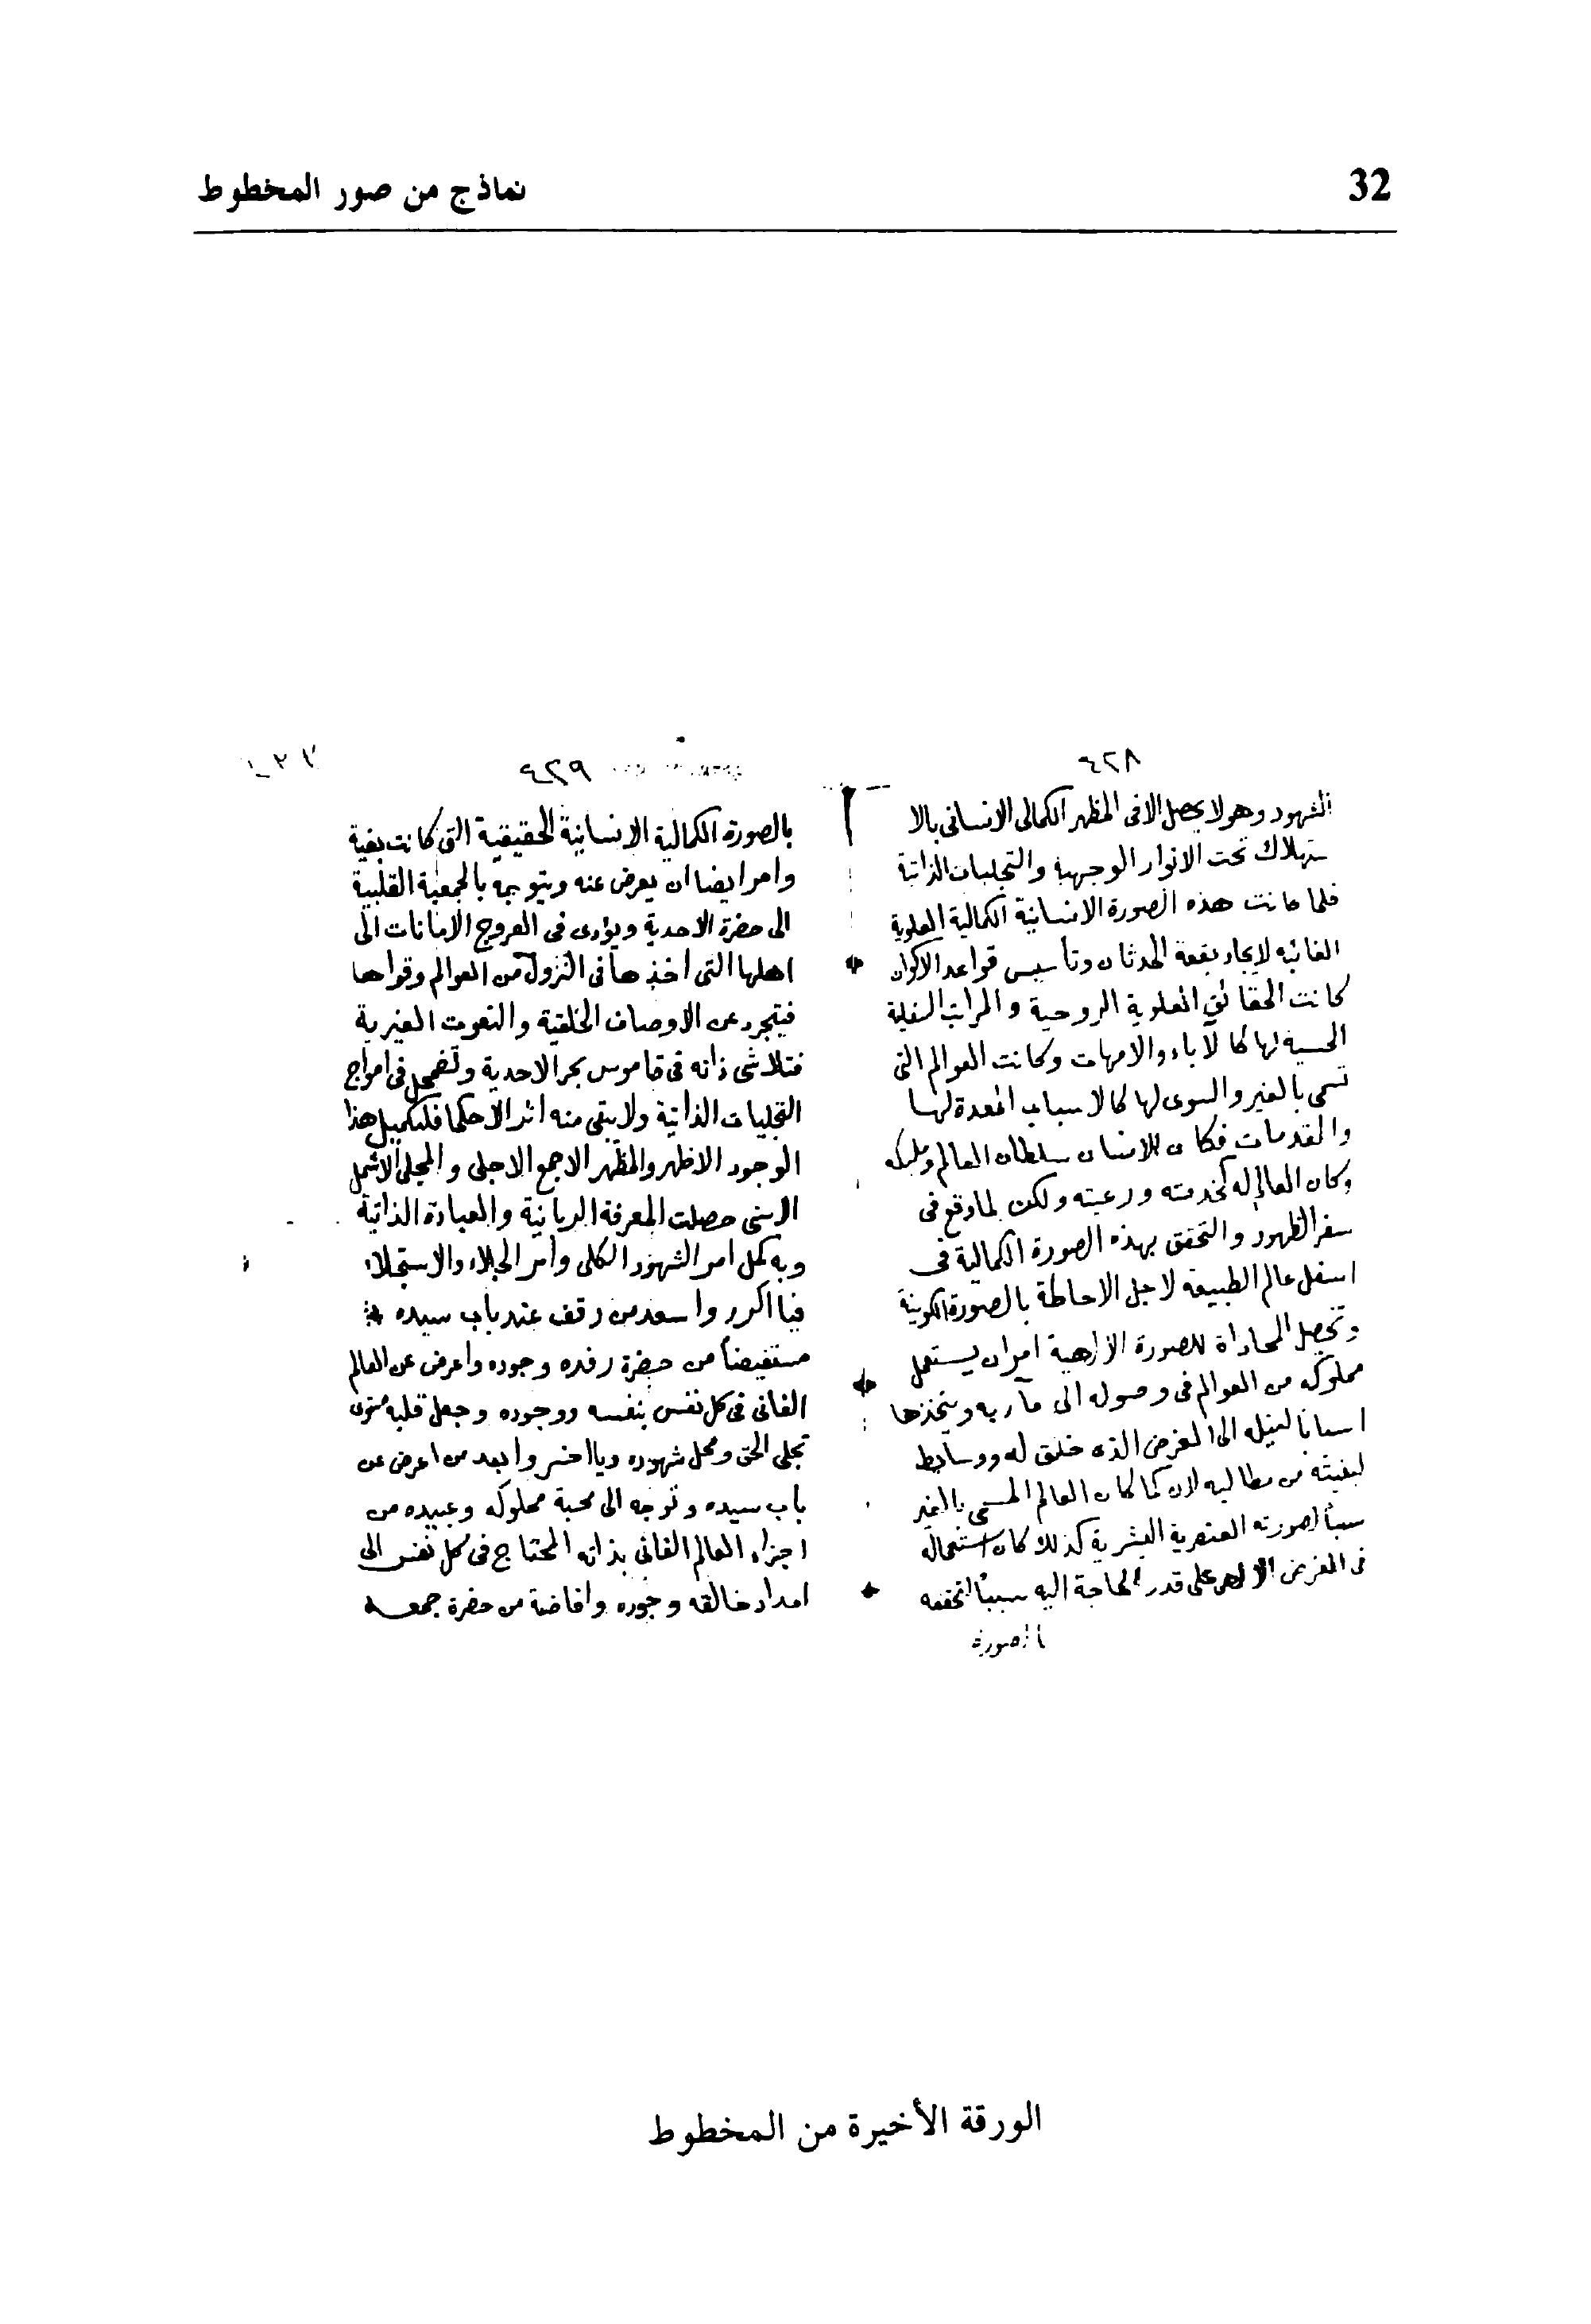 32
نماذج من صور المخطوط
٤٢٨
الشهود وهو لا يحصل الا فى المظهر الكمالى الانسانى بالا
ستهلاك تحت الانوار الوجهية والتجليات الذاتية
فلما كانت هذه الصورة الانسانية الكمالية العلوية
الغائيه لايجاد بقعة الحدثان وتأسيس قواعد الاكوان
كانت الحقائق العلوية الروحية والمراتب السفلية
الحسية لها كالآباء والامهات وكانت العوالم التى
تسمى بالغير والسوى لها كالاسباب المعدة لها
والمقدمات فكان للانسان سلطان العالم ومليكه
وكان العالم له كخدمته ورعيته ولكن لما وقع فى
سفر الظهور والتحقق بهذه الصورة الكمالية فى
اسفل عالم الطبيعة لاجل الاحاطة بالصورة الكونية
وتحصل المحاذاة للصورة الالهية امر ان يستعمل
مملوكه من العوالم فى وصوله الى مآربه ويتخذها
اسبابا لنيله الى الغرض الذى خلق له ووسايط
لبغيته من مطالبه لان كما كان العالم المسمى بالغير
سبباً لصورته العنصرية البشرية كذلك كان استعماله
فى الغرض الالهى على قدر الحاجة اليه سبباً لتحققه
الصورة
٤٢٩
بالصورة الكمالية الانسانية الحقيقية التى كانت بغية
وامر ايضا ان يعرض عنه ويتوجه بالجمعية القلبية
الى حضرة الاحدية ويؤدى فى العروج الامانات الى
اهلها التى اخذها فى النزول من العوالم وقواها
فيتجرد عن الاوصاف الخلقية والنعوت الغيرية
فتلاشى ذاته فى قاموس بحر الاحدية وتضمحل فى امواج
التجليات الذاتية ولا يبقى منه اثر الاحكا فلتكميل هذا
الوجود الاظهر والمظهر الاجمع الاجلى والمجلى الاشمل
الاسنى حصلت المعرفة الربانية والعبادة الذاتية
وبه كمل امر الشهود الكلى وامر الجلاء والاستجلاء
فيا اكرم واسعد من وقف عند باب سيده
مستفيضاً من حضرة رفده وجوده واعرض عن العالم
الفانى فى كل نفس بنفسه ووجوده وجعل قلبه مستوى
تجلى الحق ومحل شهوده ويا اخسر وابعد من اعرض عن
باب سيده وتوجه الى محبة مملوكه وعبيده من
اجزاء العالم الفانى بذاته المحتاج فى كل نفس الى
امداد خالقه وجوده وافاضة من حضرة جمعه
الورقة الأخيرة من المخطوط